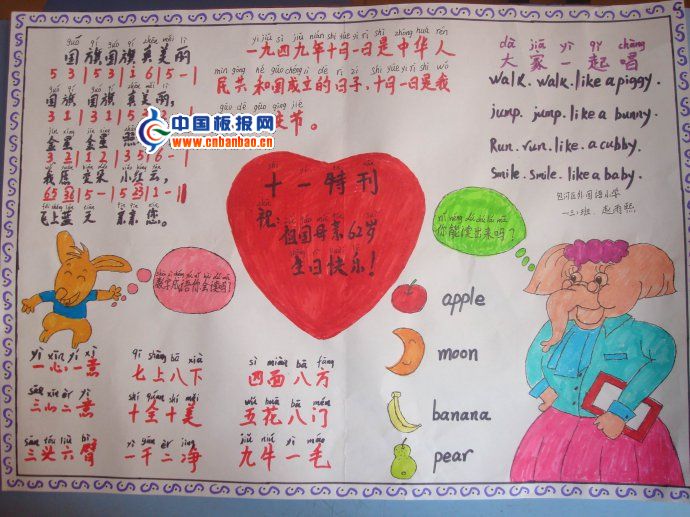 guó qí guó qí zhēn měi lì
国旗国旗真美丽
5 3 | 5 3 | i 6 | 5 - |
国旗国旗真美丽,
3 1 | 3 1 | 5 2 | 3 - |
金星金星照
3 2 | 1 2 | 3 5 | 6 - |
我愿变朵小红云,
飞上蓝天亲亲您。
中国板报网
www.cnbanbao.cn
yī jiǔ sì jiǔ nián shí yuè yī rì shì zhōng huá rén
一九四九年十月一日是中华人
mín gòng hé guó chéng lì de rì zi shí yuè yī rì shì wǒ
民共和国成立的日子.十月一日是我
guó de guó qìng jié
庆节。
dà jiā yì qǐ chàng
大家一起唱
walk. walk. like a piggy.
jump. jump. like a bunny.
Run. run. like a cubby.
Smile. Smile. like a baby.
包河区外国语小学
十一特刊
祝:
祖国母亲62岁
生日快乐!
你能读出来吗?
数字成语你会读吗!
apple
moon
banana
pear
yì xīn yí yì
一心一意
qī shàng bā xià
七上八下
sì miàn bā fāng
四面八方
sān xīn èr yì
三心二意
shí quán shí měi
十全十美
wǔ huā bā mén
五花八门
sān tóu liù bì
三头六臂
yì gān èr jìng
一干二净
jiǔ niú yì máo
九牛一毛